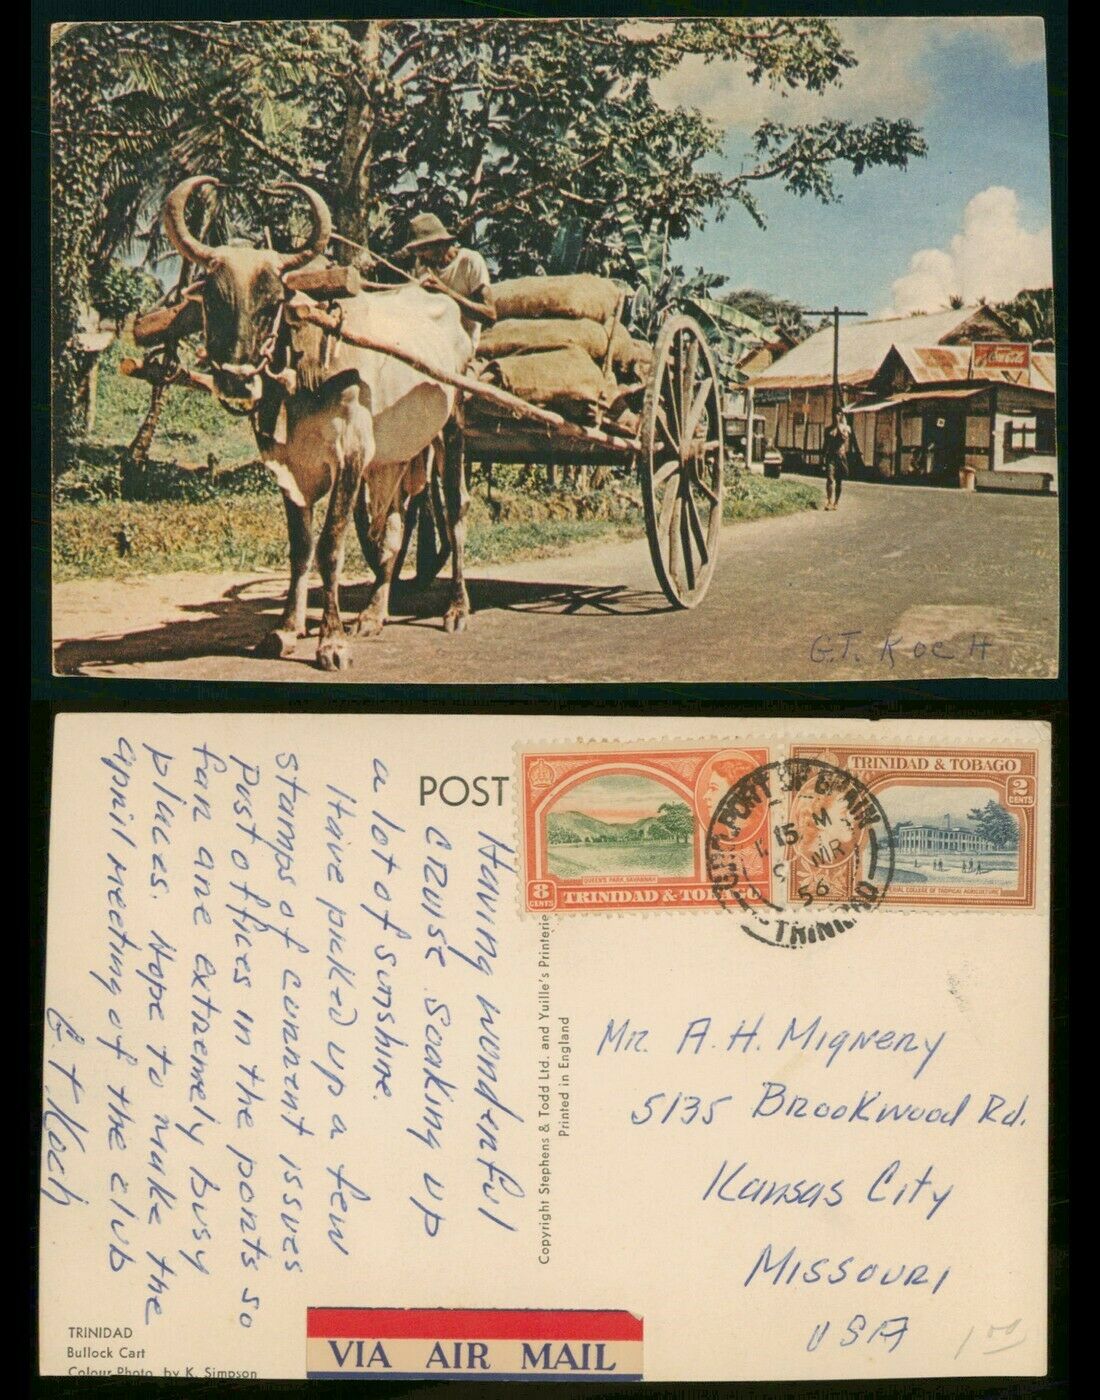 Coca-Cola
G.T. KOCH
POST
Having wonderful
cruise. Soaking up
a lot of sunshine.
Have picked up a few
stamps of current issues
Post offices in the ports so
far are extremely busy
places. Hope to make the
april meeting of the club
G. T Koch
8
CENTS
QUEEN'S PARK, SAVANNAH
TRINIDAD & TOB
TRINIDAD & TOBAGO
2
CENTS
ROYAL COLLEGE OF TROPICAL AGRICULTURE
PORT OF SPAIN
15 M
MR
56
TRINIDAD
Copyright Stephens & Todd Ltd. and Yuille's Printerie
Printed in England
Mr. A. H. Mignery
5135 Brookwood Rd.
Kansas City
Missouri
USA
1 00
TRINIDAD
Bullock Cart
Colour Photo. by K. Simpson
VIA AIR MAIL